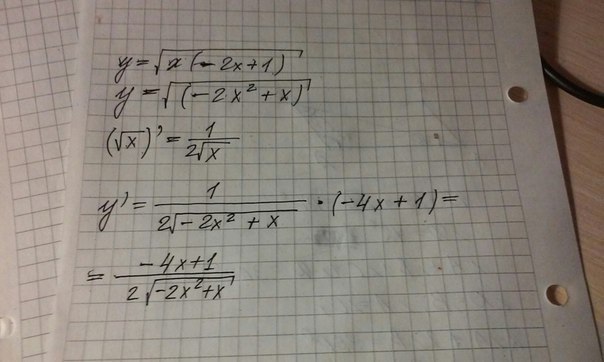 y = √(x(-2x+1))
y = √((-2x²+x))
(√x)' = 1/(2√x)
y' = 1/(2√(-2x² + x)) · (-4x+1) =
= (-4x+1)/(2√(-2x²+x))